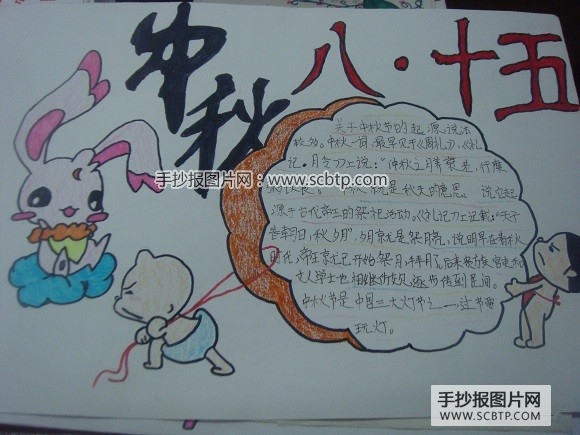 中秋
八·十五
关于中秋节的起源,说法
较多。中秋一词,最早见于《周礼》,《礼
记·月令》上说:"仲秋之月养衰老,行糜
粥饮食。" 就是秋天的意思 说它起
源于古代帝王的祭祀活动。《礼记》上记载:"天子
春朝日,秋夕月",夕月就是祭月亮,说明早在春秋
时代,帝王就已开始祭月、拜月了。后来贵族官吏和
文人学士也相继仿效,逐步传到民间。
中秋节是中国三大灯节之一,过节要
玩灯。
手抄报图片网:www.scbtp.com
手抄报图片网
www.SCBTP.com